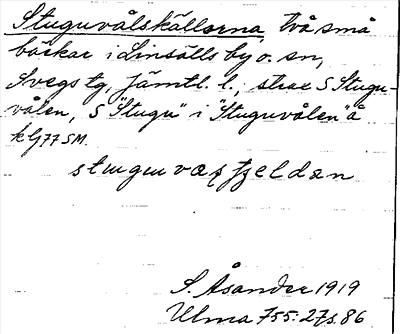 Stuguvålskällorna, två små
bäckar i Linsälls by o. sn,
Svegs tg, Jämtl. l.; strax S Stugu-
vålen, S "Stugu" i "Stuguvålen" å
kbl 77 SM.
S. Åsander 1919
Ulma 755: 27 s. 86